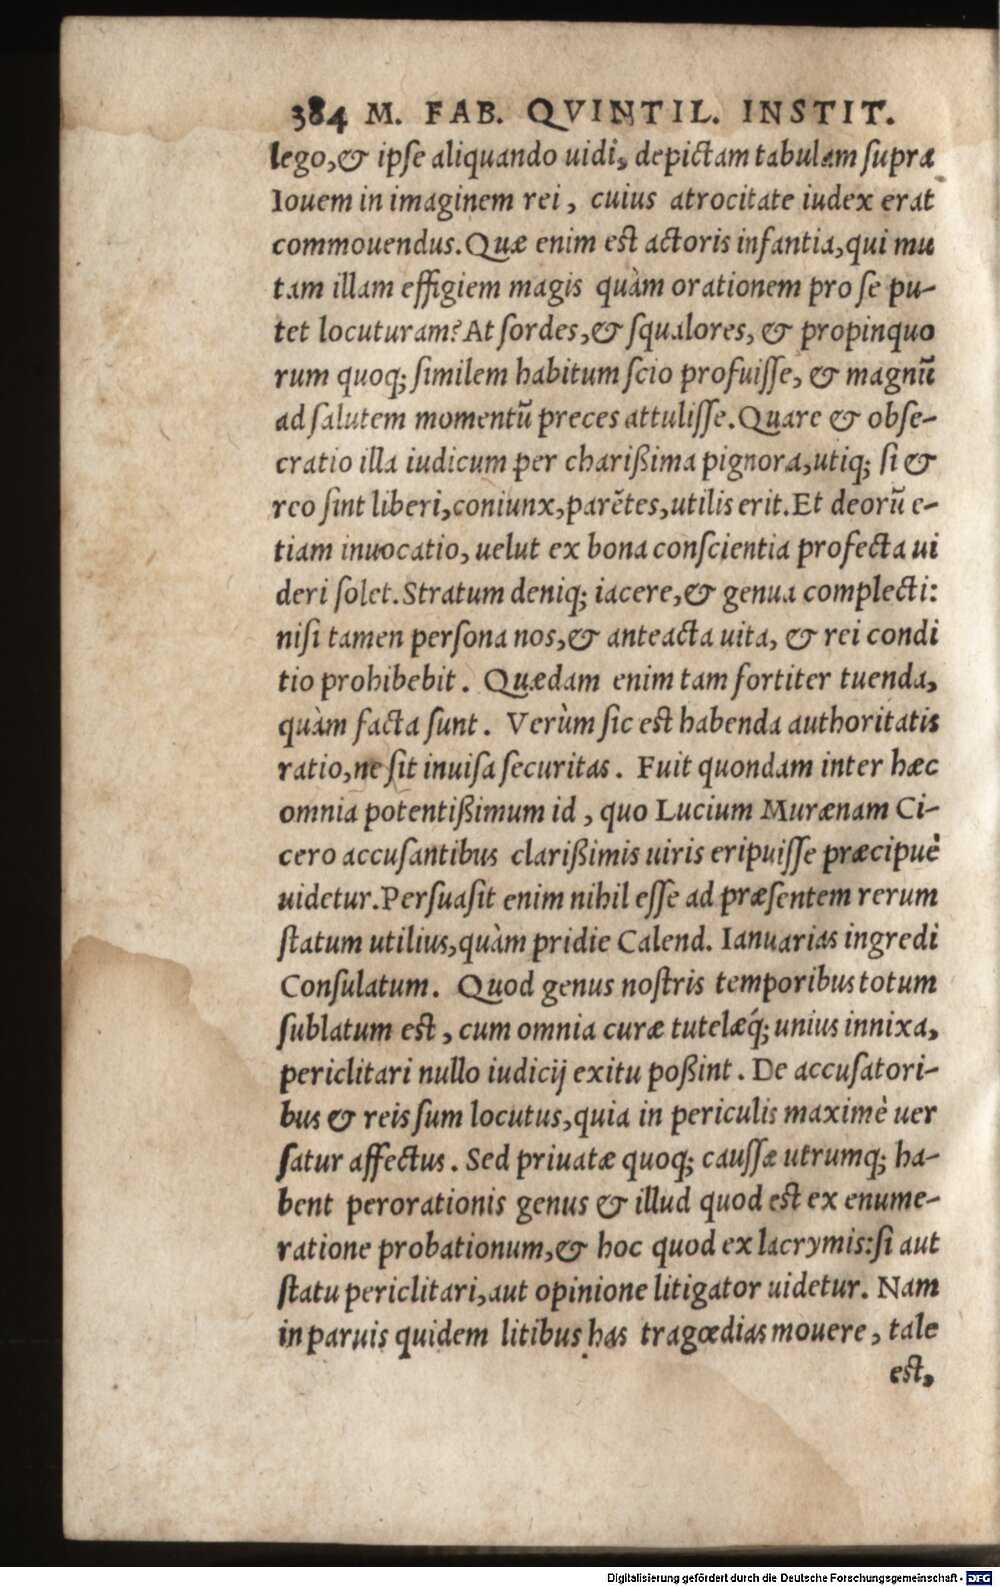 384 M. FAB. QVINTIL. INSTIT.
lego,& ipſe aliquando uidi, depictam tabulam ſupra
Iouem in imaginem rei, cuius atrocitate iudex erat
commouendus. Quæ enim eſt actoris infantia, qui mu
tam illam effigiem magis quàm orationem pro ſe pu-
tet locuturam? At ſordes,& ſqualores, & propinquo
rum quoq; ſimilem habitum ſcio profuiſſe, & magnũ
ad ſalutem momentũ preces attuliſſe. Quare & obſe-
cratio illa iudicum per charißima pignora, utiq; ſi &
reo ſint liberi, coniunx, parẽtes, utilis erit. Et deorũ e-
tiam inuocatio, uelut ex bona conſcientia profecta ui
deri ſolet. Stratum deniq; iacere,& genua complecti:
niſi tamen perſona nos,& anteacta uita, & rei condi
tio prohibebit. Quædam enim tam fortiter tuenda,
quàm facta ſunt. Verùm ſic eſt habenda authoritatis
ratio, ne ſit inuiſa ſecuritas. Fuit quondam inter hæc
omnia potentißimum id, quo Lucium Murænam Ci-
cero accuſantibus clarißimis uiris eripuiſſe præcipuè
uidetur. Perſuaſit enim nihil eſſe ad præſentem rerum
ſtatum utilius, quàm pridie Calend. Ianuarias ingredi
Conſulatum. Quod genus noſtris temporibus totum
ſublatum eſt, cum omnia curæ tutelæq́; unius innixa,
periclitari nullo iudicij exitu poßint. De accuſatori-
bus & reis ſum locutus, quia in periculis maximè uer
ſatur affectus. Sed priuatæ quoq; cauſſæ utrumq; ha-
bent perorationis genus & illud quod eſt ex enume-
ratione probationum,& hoc quod ex lacrymis: ſi aut
ſtatu periclitari, aut opinione litigator uidetur. Nam
in paruis quidem litibus has tragœdias mouere, tale
eſt,
Digitalisierung gefördert durch die Deutsche Forschungsgemeinschaft - DFG